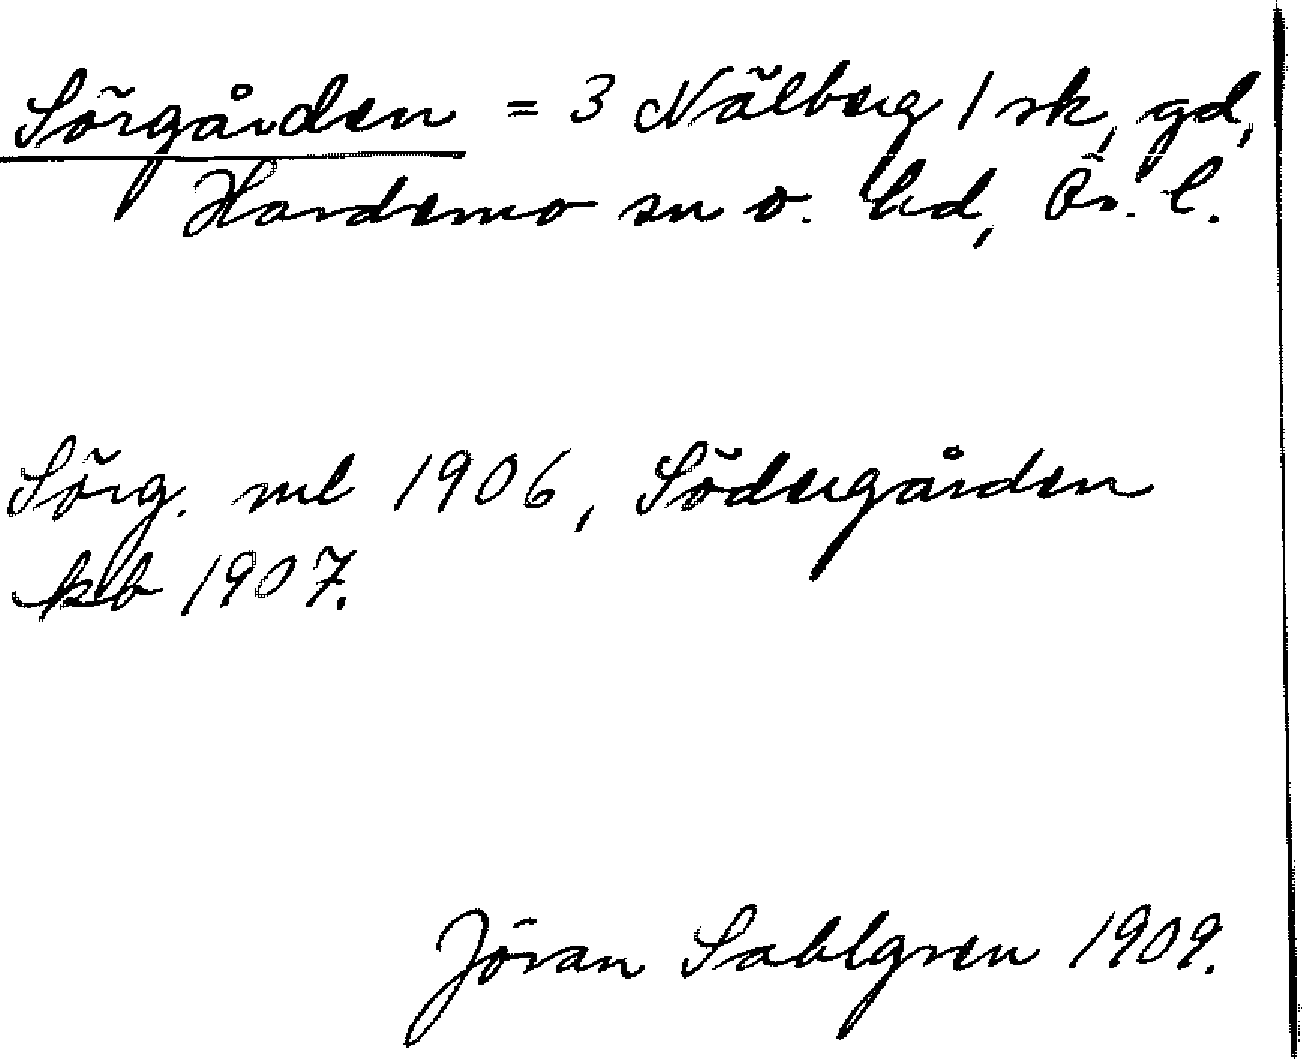 Sörgården = 3 Nälberg 1 sk, gd,
Hardemo sn o. hd, Ör. l.
Sörg. ml 1906, Södergården
kb 1907.
Jöran Sahlgren 1909.